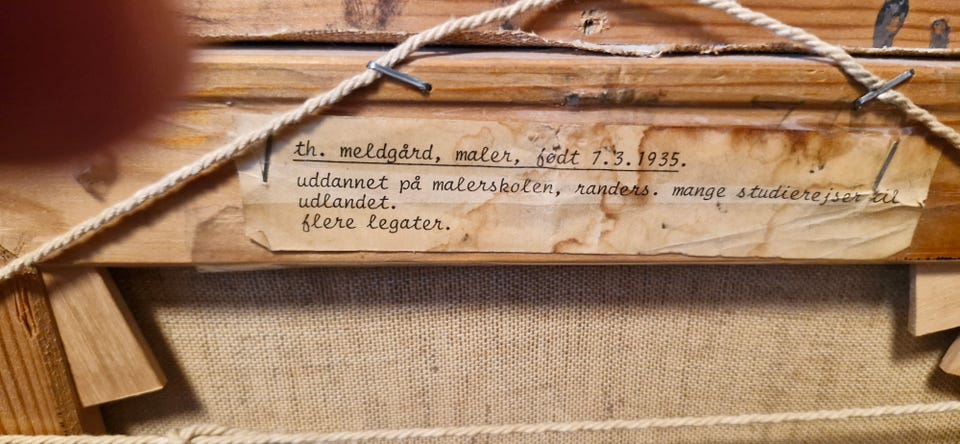 th. meldgård, maler, født 7.3.1935.
uddannet på malerskolen, randers. mange studierejser til
udlandet.
flere legater.